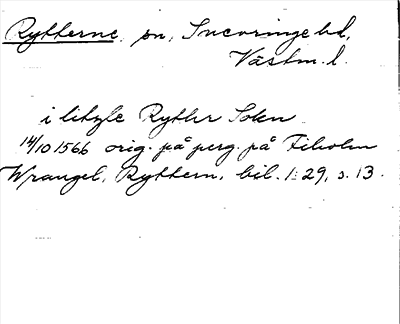 Rytterne sn, Snevringe hd,
Västm. l.
i litzle Rytter Sokn
14/10 1566 orig. på perg. på Tidoholm
Wrangel, Ryttern, bil. 1:29, s. 13.